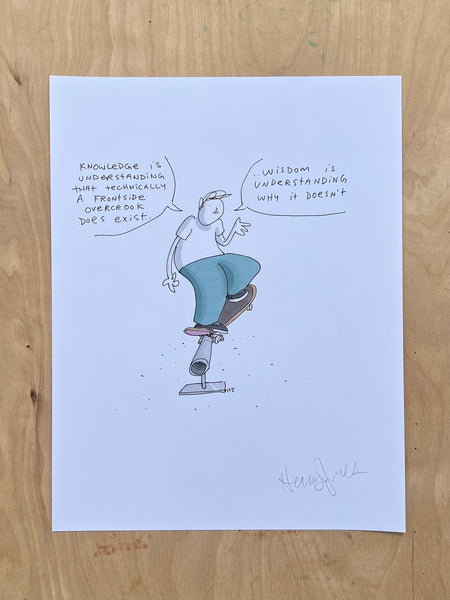 KNOWLEDGE IS
UNDERSTANDING
THAT TECHNICALLY
A FRONTSIDE
OVERCROOK
DOES EXIST.
..WISDOM IS
UNDERSTANDING
WHY IT DOESN'T